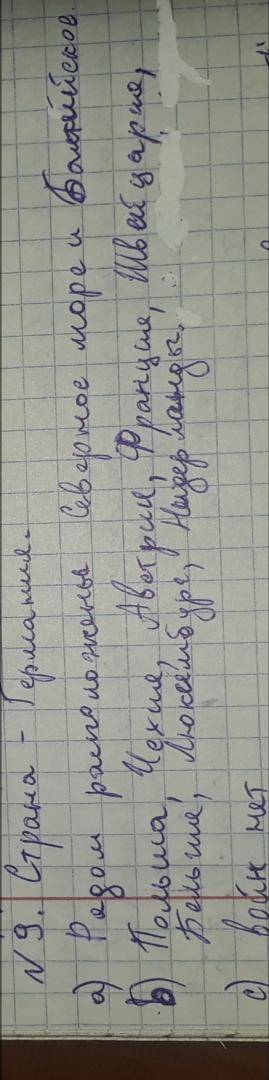 N 9. Страна - Германия.
a) Рядом расположены Северное море и Балтийсков.
b) Польша, Чехия, Австрия, Франция, Швейцария,
Бельгия, Люксембург, Нидерланды.
c) Войн нет